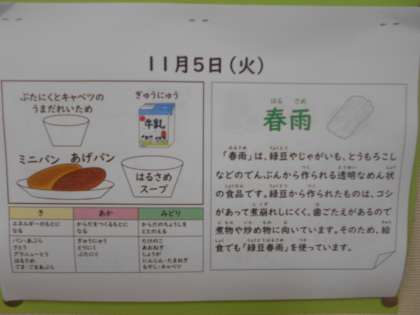 11月5日（火）
ぶたにくとキャベツの
うまだれいため
ぎゅうにゅう
牛乳
ミニパン
あげパン
はるさめ
スープ
き
あか
みどり
エネルギーのもとに
なる
からだをつくるもとに
なる
からだのちょうしを
ととのえる
パン・あぶら
さとう
グラニューとう
はるさめ
ごま・ごまあぶら
ぎゅうにゅう
とりにく
ぶたにく
たけのこ
あおねぎ
しょうが
にんじん・たまねぎ
もやし・キャベツ
はる さめ
春雨
「春雨」は、緑豆やじゃがいも、とうもろこし
などのでんぷんから作られる透明なめん状
の食品です。緑豆から作られたものは、コシ
があって煮崩れしにくく、歯ごたえがあるので
煮物や炒め物に向いています。そのため、給
食でも「緑豆春雨」を使っています。